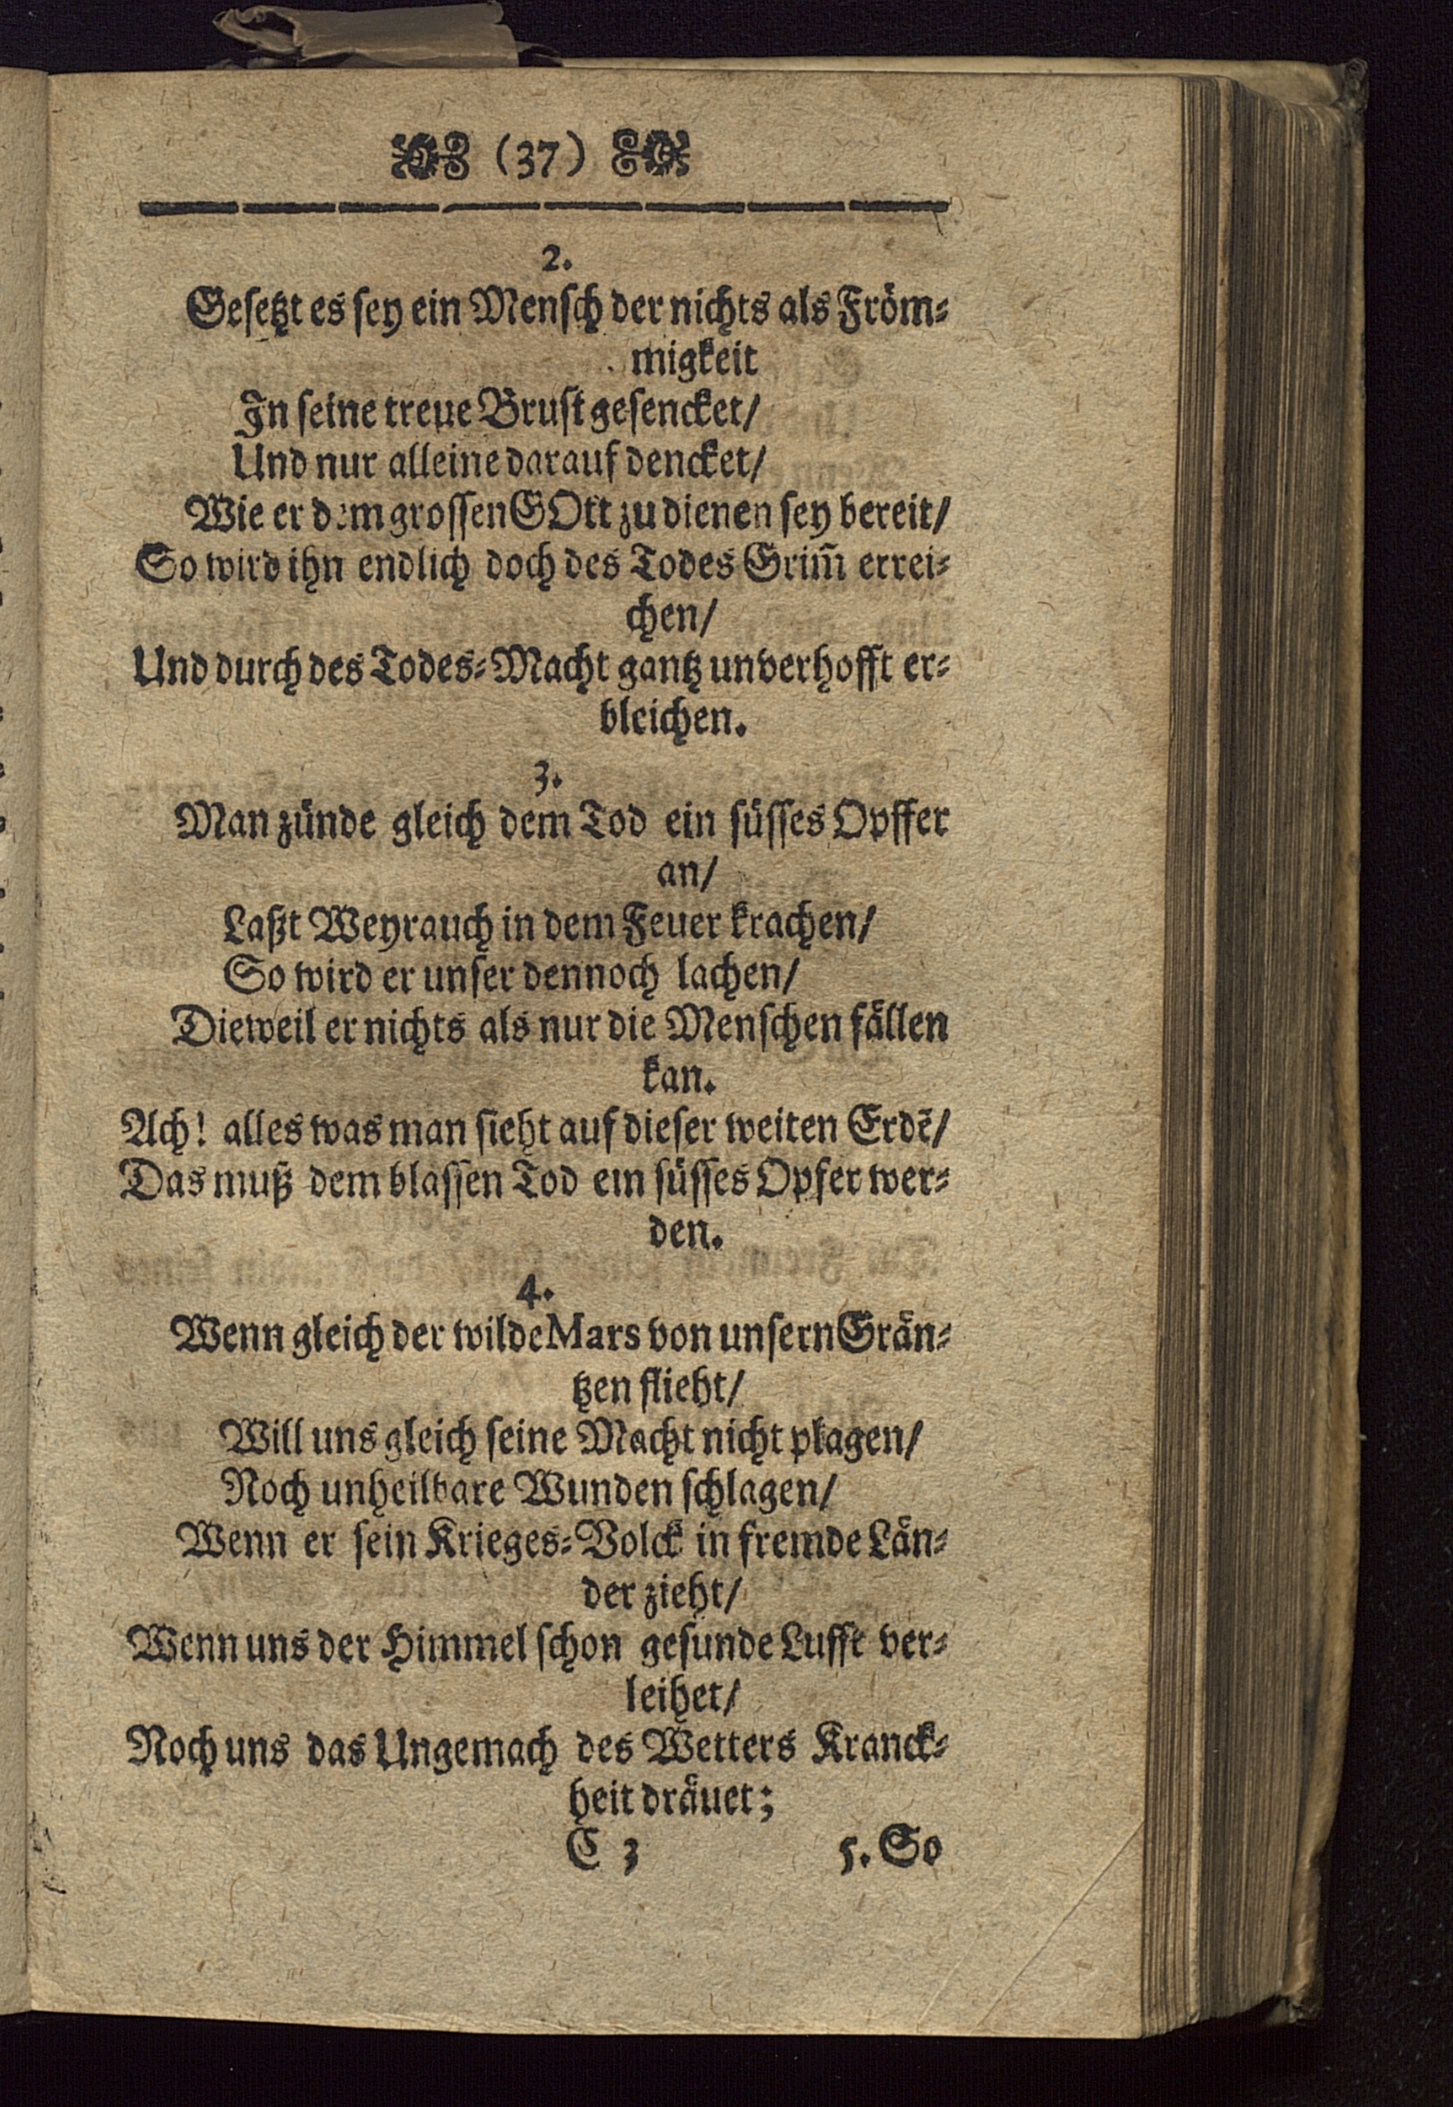 (37)
2.
Gesetzt es sey ein Mensch der nichts als Fröm-
migkeit
In seine treue Brust gesencket/
Und nur alleine darauf dencket/
Wie er dem grossen GOtt zu dienen sey bereit/
So wird ihn endlich doch des Todes Grim̃ errei-
chen/
Und durch des Todes-Macht gantz unverhofft er-
bleichen.
3.
Man zünde gleich dem Tod ein süsses Opffer
an/
Laßt Weyrauch in dem Feuer krachen/
So wird er unser dennoch lachen/
Dieweil er nichts als nur die Menschen fällen
kan.
Ach! alles was man sieht auf dieser weiten Erdẽ/
Das muß dem blassen Tod ein süsses Opfer wer-
den.
4.
Wenn gleich der wilde Mars von unsern Grän-
tzen flieht/
Will uns gleich seine Macht nicht plagen/
Noch unheilbare Wunden schlagen/
Wenn er sein Krieges-Volck in fremde Län-
der zieht/
Wenn uns der Himmel schon gesunde Lufft ver-
leihet/
Noch uns das Ungemach des Wetters Kranck-
heit dräuet;
C 3 5. So